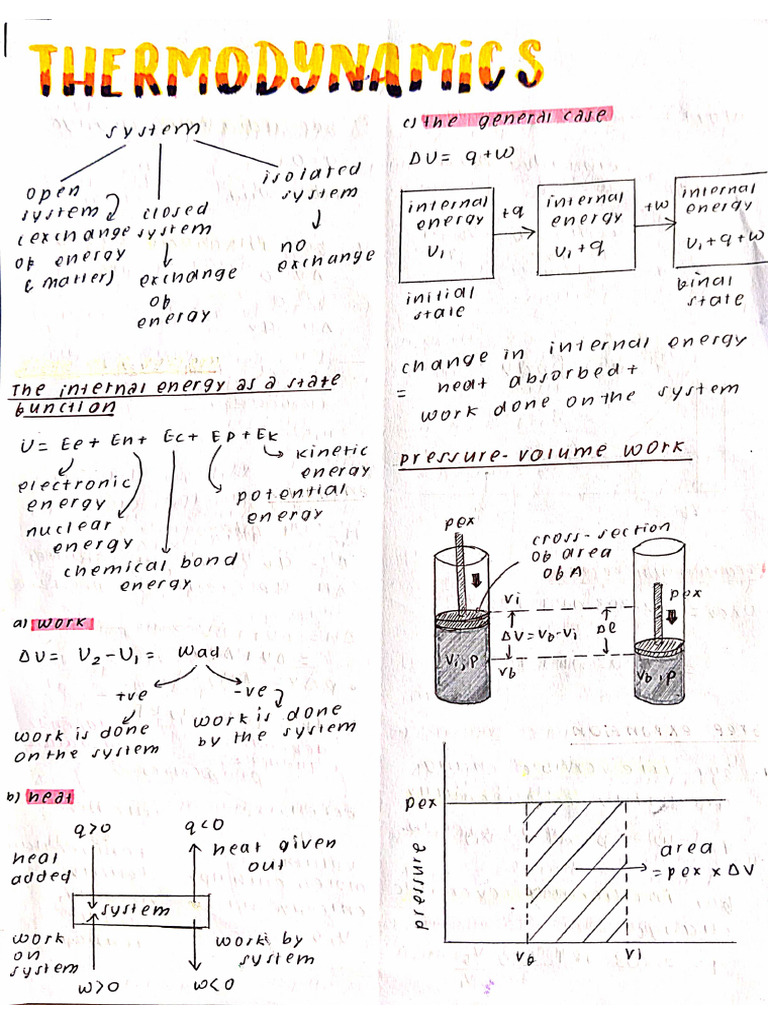 THERMODYNAMICS
system
open
system
(exchange
of energy
& matter)
closed
system
exchange
of
energy
isolated
system
no
exchange
The internal energy as a state
function
U = Ee + En + Ec + Ep + Ek
electronic
energy
nuclear
energy
chemical bond
energy
potential
energy
kinetic
energy
a) work
ΔU = U2 - U1 = wad
+ve
-ve
work is done
on the system
work is done
by the system
b) heat
q>0
q<0
heat
added
heat given
out
system
work
on
system
work by
system
w>0
w<0
c) the general case
ΔU = q + w
internal
energy
U1
+q
internal
energy
U1 + q
+w
internal
energy
U1 + q + w
initial
state
final
state
change in internal energy
= heat absorbed +
work done on the system
pressure-volume work
pex
cross-section
of area
of A
vi
ΔV = Vf - Vi
Δl
pex
Vi, P
vf
Vf, P
pex
pressure
area
= pex x ΔV
Vf
Vi